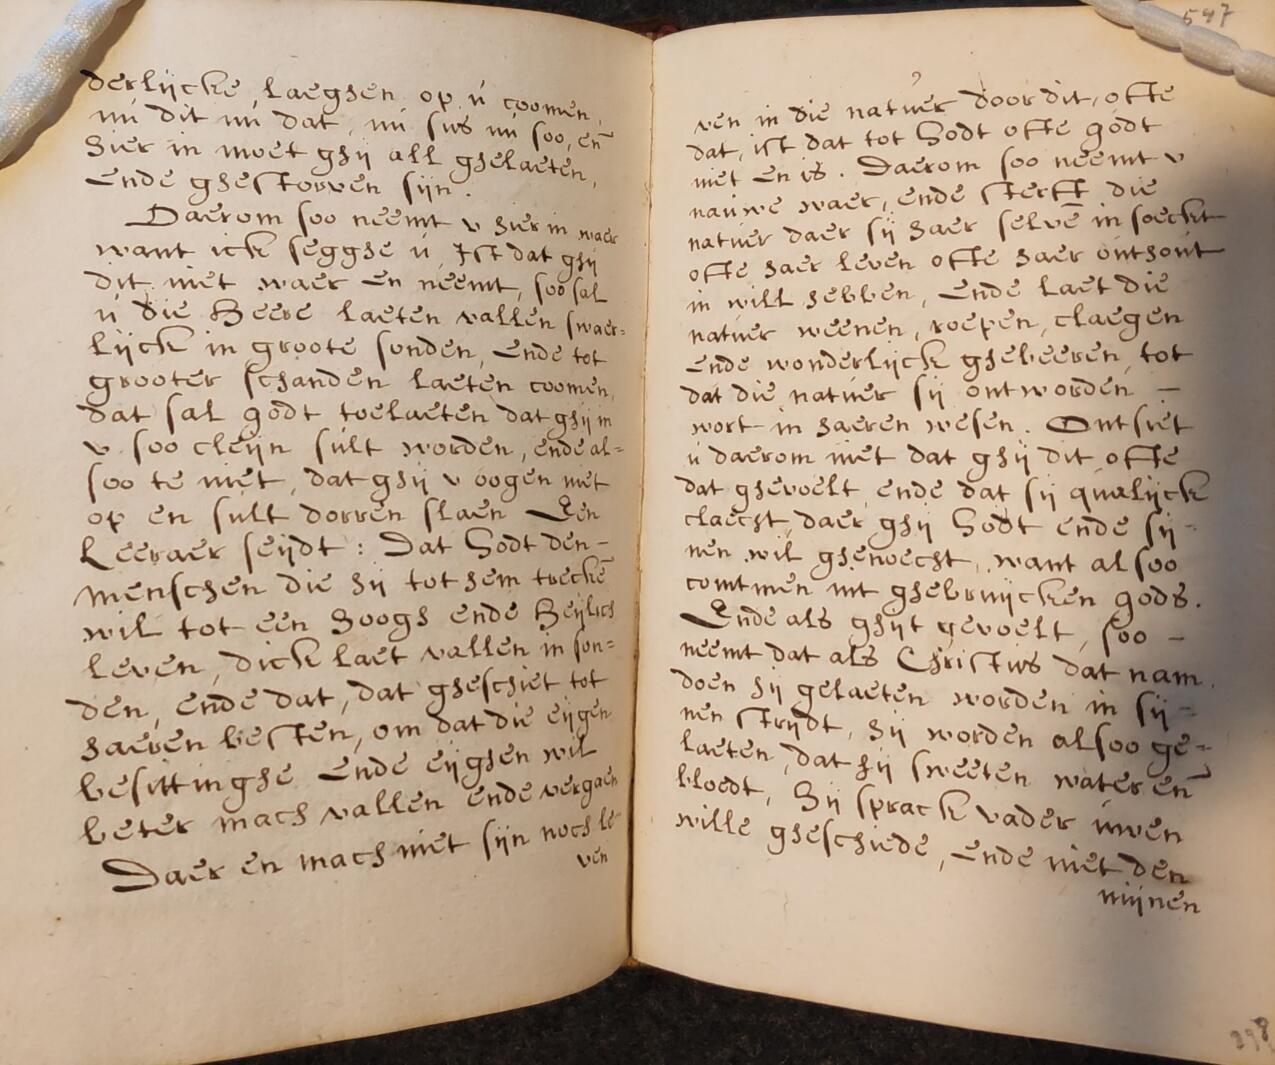 derlijcke, laeghen op ú coomen,
nú dit nú dat, nú sus nú soo, en̄
hier in moet ghij all ghelaeten,
ende ghestorven sijn.
Daerom soo neemt v hier in waer
want ick segghe ú, Ist dat ghij
dit niet waer en neemt, soo sal
ú die Heere laeten vallen swaer=
lijck in groote sonden, ende tot
grooter schanden laeten coomen,
dat sal godt toelaeten dat ghij in
v soo cleijn súlt worden, ende al=
soo te niet, dat ghij v oogen niet
op en súlt dorren slaen Een
Leeraer seijdt: Dat Godt den-
menschen die hij tot hem trecken̄
wil tot een hoogh ende heijlich
leven, dick laet vallen in son=
den, ende dat, dat gheschiet tot
haeren besten, om dat die eijgen
besittinghe ende eijghen wil
beter mach vallen ende vergaen
Daer en mach niet sijn noch le
ven
547
ven in die natúer door dit, ofte
dat, ist dat tot Godt ofte godt
niet en is. Daerom soo neemt v
naúwe waer, ende sterft die
natúer daer sij haer selvē in soeckt
ofte haer leven ofte haer onthoút
in will hebben, ende laet die
natúer weenen, roepen, claegen
ende wonderlijck ghebeeren, tot
dat die natúer sij ontworden —
wort in haeren wesen. Ontsiet
ú daerom niet dat ghij dit ofte
dat ghevoelt, ende dat sij qualijck
claecht, daer ghij Godt ende sij-
nen wil ghenoecht, want alsoo
comt men int ghebruijcken gods.
Ende als ghijt gevoelt, soo —
neemt dat als Christús dat nam,
doen hij gelaeten worden in sij-
nen strijdt, hij worden alsoo ge=
laeten, dat hij sweeten water en̄
bloedt, Hij sprack vader úwen
wille gheschiede, ende niet den
mijnen
298